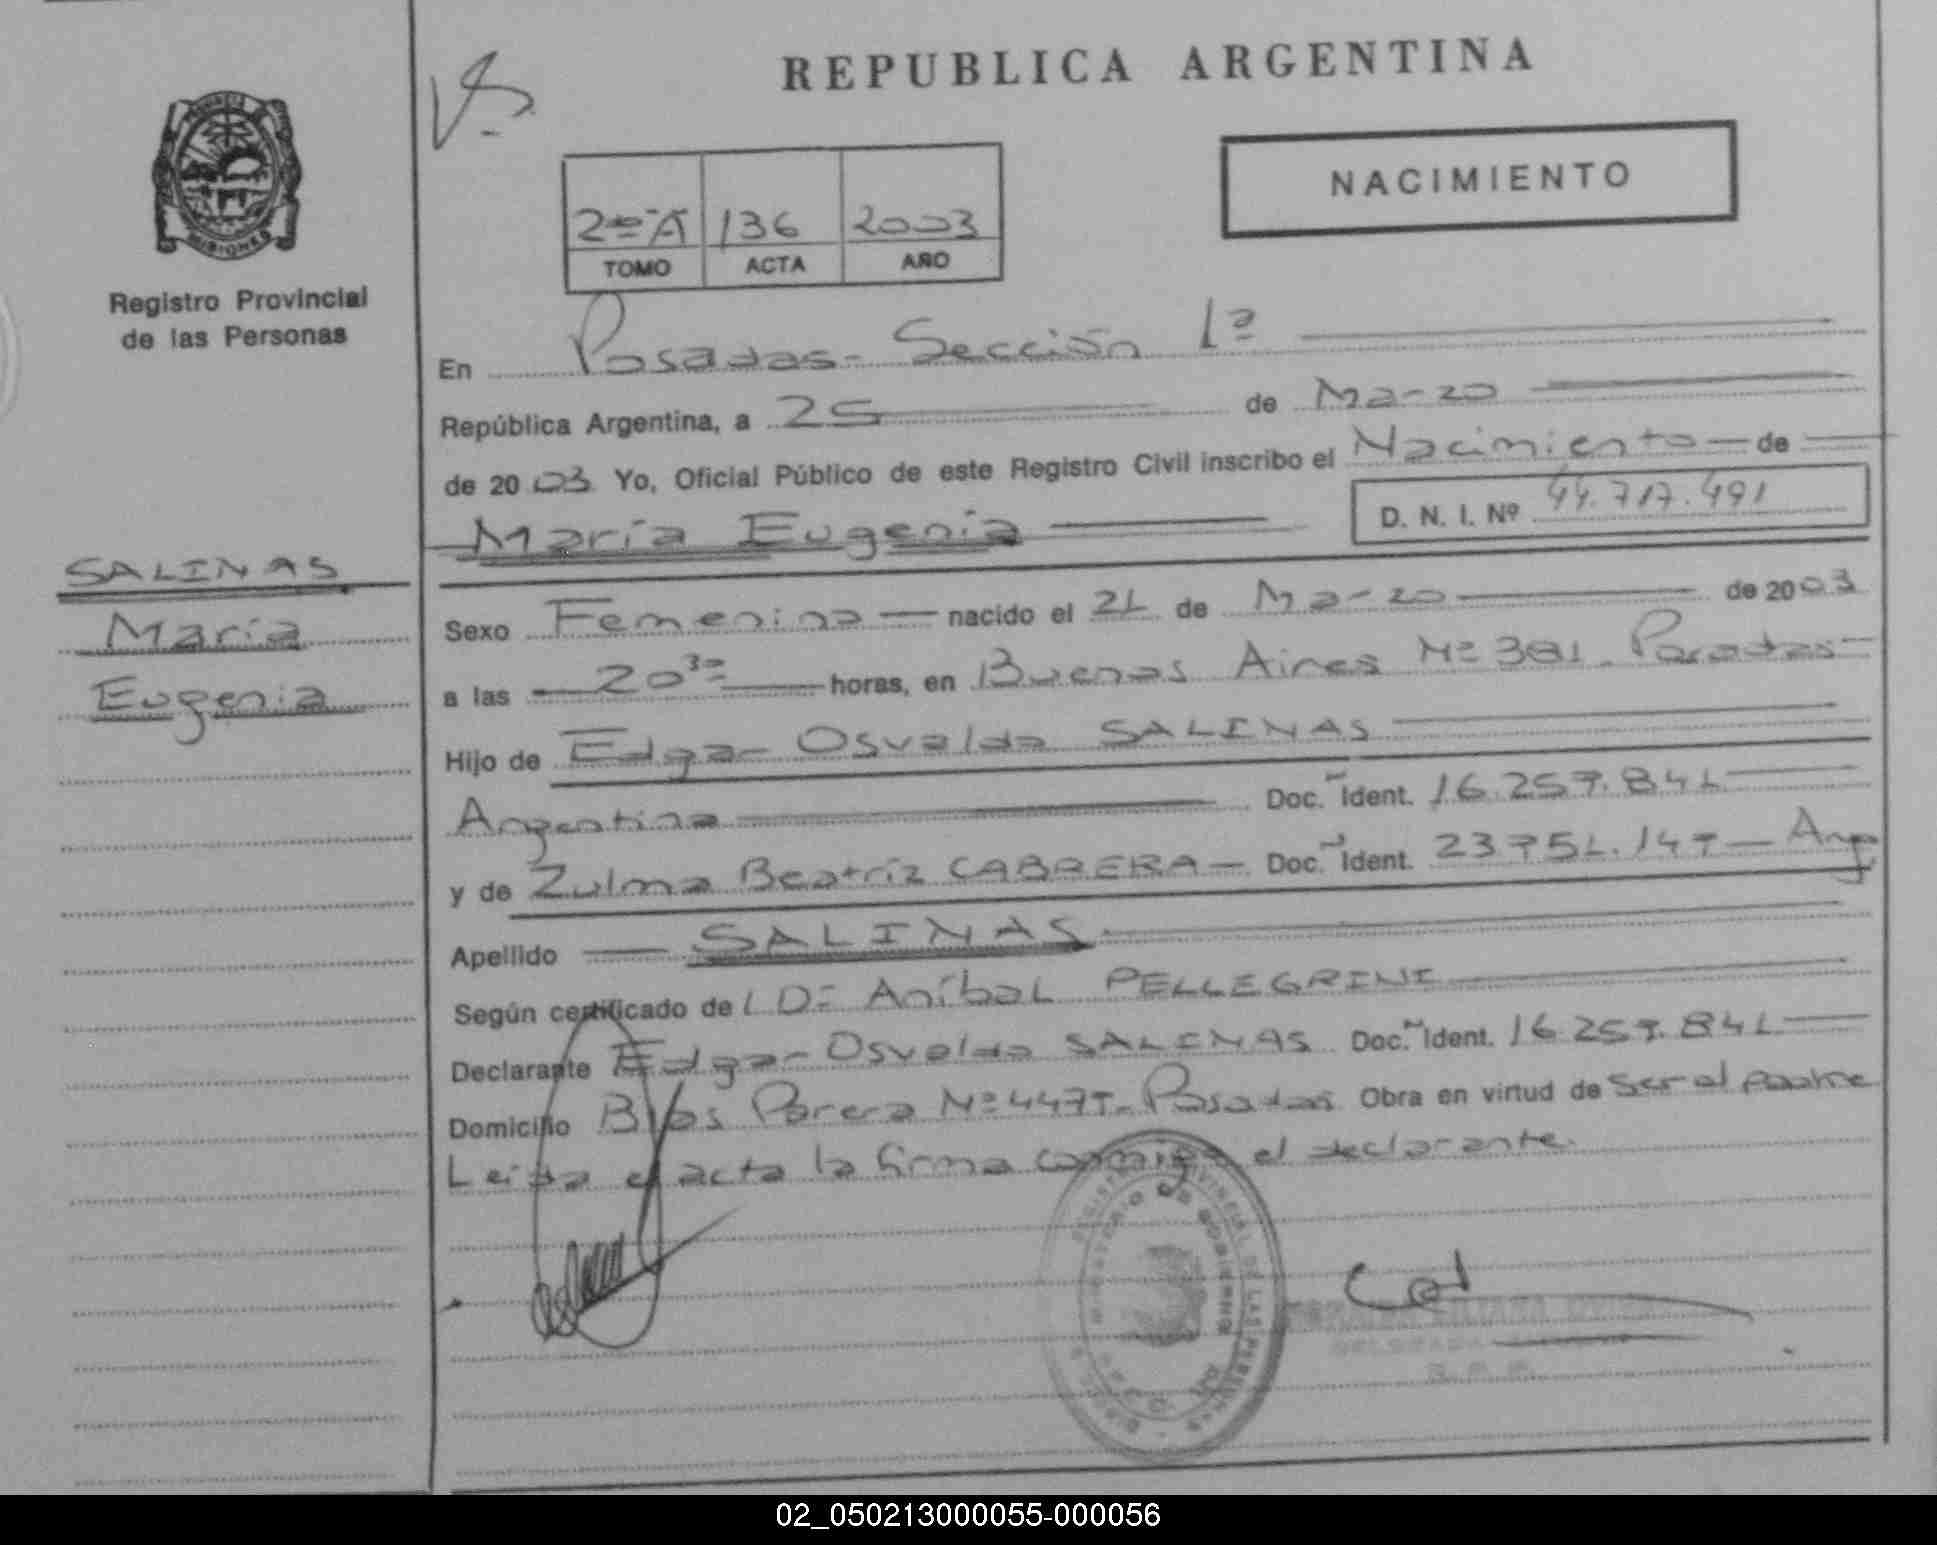 REPUBLICA ARGENTINA
NACIMIENTO
2º A 136 2003
TOMO ACTA AÑO
MISIONES
Registro Provincial
de las Personas
SALINAS
María
Eugenia
En Posadas - Sección 1ª
República Argentina, a 25 de Marzo
de 2003 Yo, Oficial Público de este Registro Civil inscribo el Nacimiento de
María Eugenia D. N. I. Nº 44.717.491
Sexo Femenino nacido el 21 de Marzo de 2003
a las 20 30 horas, en Buenos Aires Nº 381 - Posadas
Hijo de Edgar Osvaldo SALINAS
Argentino Doc. Ident. 16.257.841
y de Zulma Beatríz CABRERA Doc. Ident. 23.751.147 - Arg
Apellido SALINAS
Según certificado de Dr Aníbal PELLEGRINI
Declarante Edgar Osvaldo SALINAS Doc. Ident. 16.257.841
Domicilio Blas Parera Nº 4477 - Posadas Obra en virtud de ser el padre
Leída el acta la firma conmigo el declarante.
02_050213000055-000056